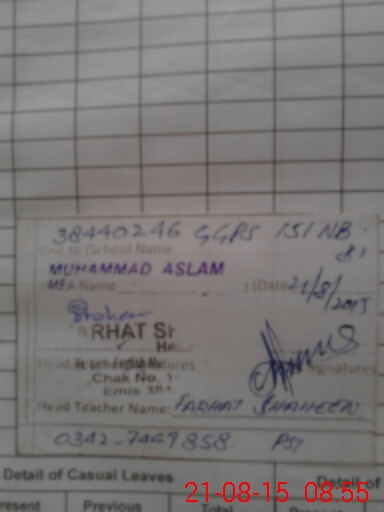 38440246 GGPS 151 NB
(School Name
MUHAMMAD ASLAM
MEA Name
(Date 21/8/2015
Shaheen
ARHAT SH
Signatures
Chak No. 1
Emis 384
Head Teacher Name: FARHAT SHAHEEN
0342-7447858 PST
Detail of Casual Leaves
Detail of
resent Previous Total
21-08-15 08:55